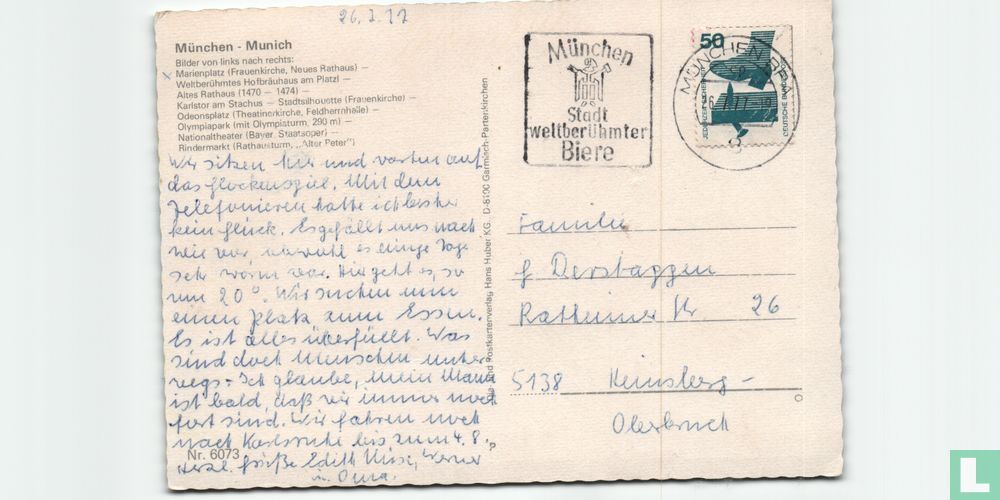 26.7.77
München - Munich
Bilder von links nach rechts:
x Marienplatz (Frauenkirche, Neues Rathaus) —
Weltberühmtes Hofbräuhaus am Platzl —
Altes Rathaus (1470 — 1474) —
Karlstor am Stachus — Stadtsilhouette (Frauenkirche) —
Odeonsplatz (Theatinerkirche, Feldherrnhalle) —
Olympiapark (mit Olympiaturm, 293 m) —
Nationaltheater (Bayer. Staatsoper) —
Rindermarkt (Rathausturm, „Alter Peter")
Wir sitzen hier und warten auf
das Glockenspiel. Mit dem
Telefonieren hatte ich bisher
kein Glück. Es gefällt uns nach
wie vor, obwohl es einige Tage
sehr warm war. Hier geht es, so
um 20°. Wir suchen nun
einen Platz zum Essen.
Es ist alles überfüllt. Was
sind doch Menschen unter
wegs. Ich glaube, mein Mann
ist bald, daß wir immer noch
fort sind. Wir fahren noch
nach Karlsruhe bis zum 4.8.
Nr. 6073
Herzl. Grüße Edith, Werner
u. Oma.
Postkartenverlag Hans Huber KG., D-8100 Garmisch-Partenkirchen
München
Stadt
weltberühmter
Biere
MÜNCHEN BPA
8
50
JEDERZEIT SICHERHEIT
DEUTSCHE BUNDESPOST
Familie
J Derstaggen
Ratheimer Str 26
5138 Heinsberg-
Oberbruch
L